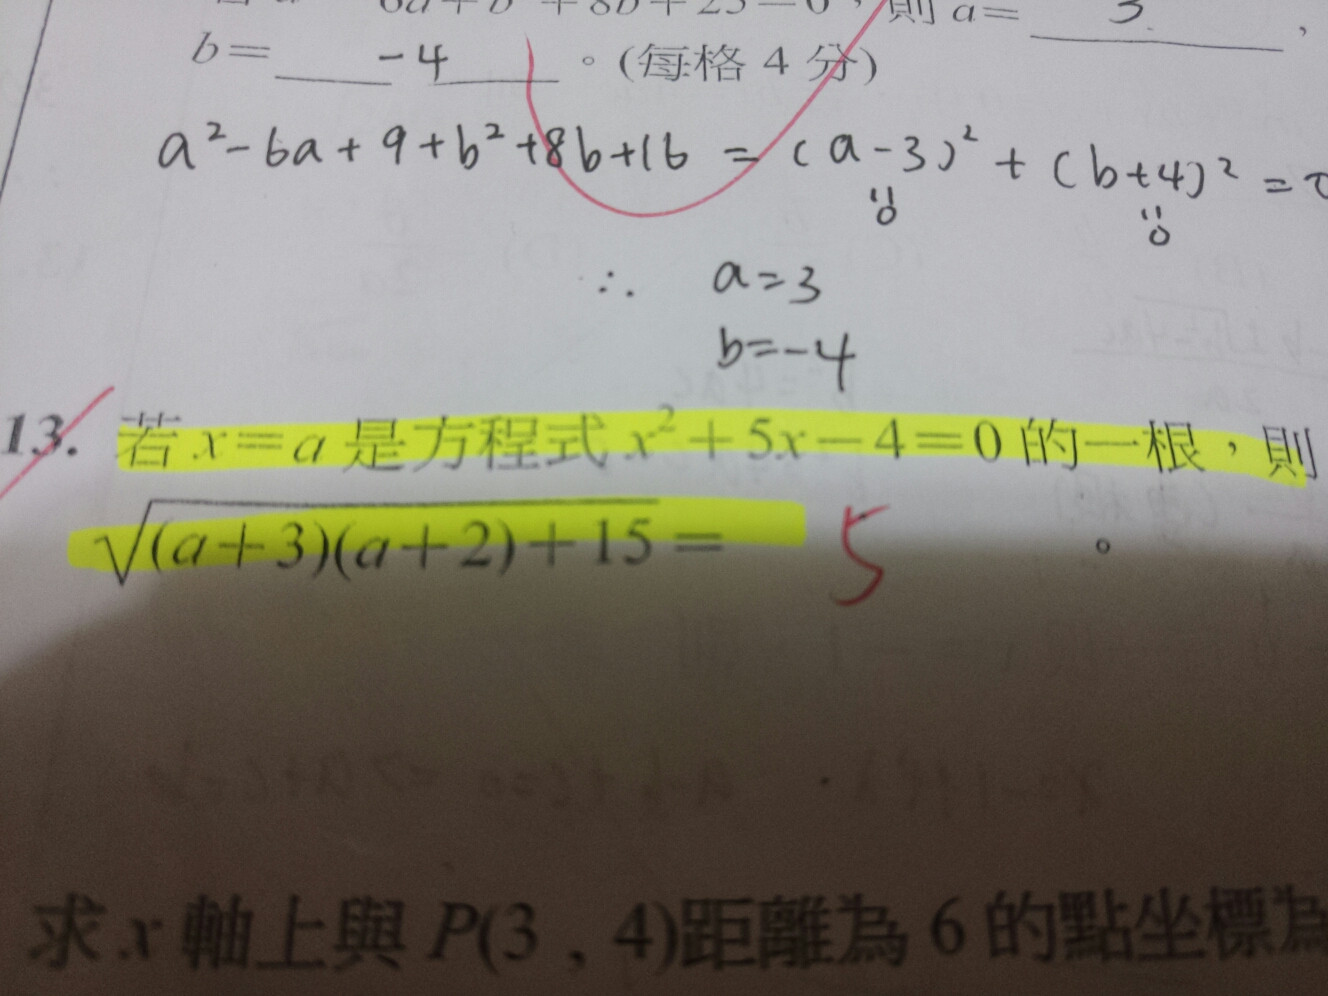 6a+b²+8b+25=0,則 a= 3,
b= -4 。(每格 4 分)
a²-6a+9+b²+8b+16 = (a-3)²+(b+4)²=0
"0 "0
∴ a=3
b=-4
13. 若 x=a 是方程式 x²+5x-4=0 的一根,則
√(a+3)(a+2)+15= 5 。
求 x 軸上與 P(3 , 4)距離為 6 的點坐標為